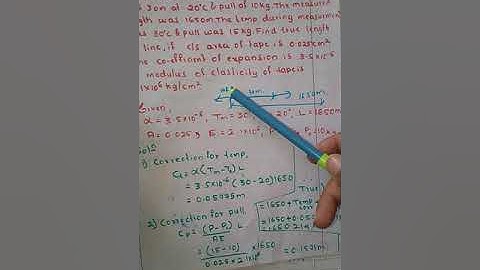 30m at 20°c & pull of 10kg. The measured
length was 1650m. The temp during measurement
30°c & pull was 15kg. Find true length
line, if c/s area of tape is 0.025cm²
co-efficient of expansion is 3.5x10⁻⁶
modulus of elasticity of tape is
10⁶ kg/cm².
Given,
30m
1650m
α = 3.5x10⁻⁶, Tm = 30, 20°, L = 1650m
A = 0.025, E = 2.1x10⁶, P
1) Correction for temp.
Ct = α (Tm - T0) L
= 3.5x10⁻⁶ (30 - 20) 1650
= 0.05775m
2) Correction for pull,
Cp = (P - P0) L
AE
= (15 - 10) x 1650
0.025 x 2.1x10⁶
= 0.1571m
True
= 1650 + Temp
= 1650 + 0.05
= 1650.21m